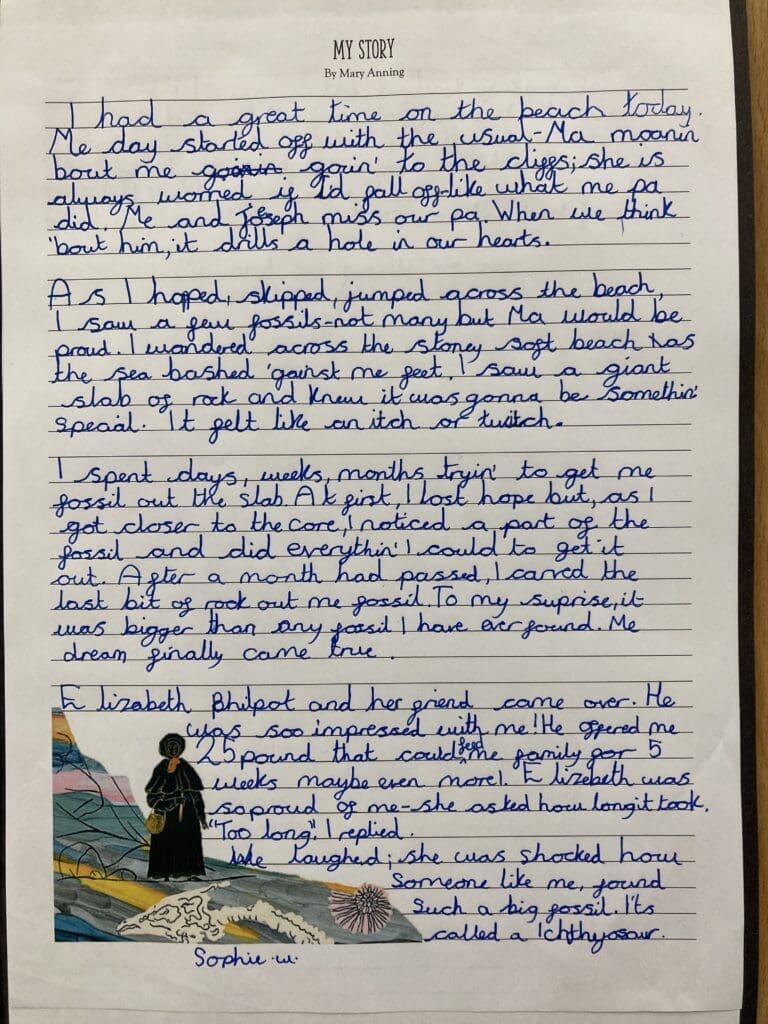 MY STORY
By Mary Anning
I had a great time on the beach today.
Me day started off with the usual-Ma moanin
bout me goin' to the cliffs; she is
always worried if I'd fall off-like what me pa
did. Me and Joseph miss our pa. When we think
'bout him, it drills a hole in our hearts.
As I hopped, skipped, jumped across the beach,
I saw a few fossils-not many but Ma would be
proud. I wandered across the stoney soft beach as
the sea bashed 'gainst me feet. I saw a giant
slab of rock and knew it was gonna be somethin'
special. It felt like an itch or twitch.
I spent days, weeks, months tryin' to get me
fossil out the slab. At first, I lost hope but, as I
got closer to the core, I noticed a part of the
fossil and did everythin' I could to get it
out. After a month had passed, I carved the
last bit of rock out me fossil. To my suprise, it
was bigger than any fossil I have ever found. Me
dream finally came true.
Elizabeth Philpot and her friend came over. He
was soo impressed with me! He offered me
25 pound that could feed me family for 5
weeks maybe even more!. Elizebeth was
so proud of me-she asked how long it took.
"Too long". I replied.
We laughed; she was shocked how
Someone like me, found
Such a big fossil. It's
called a Ichthyosaur.
Sophie.w.